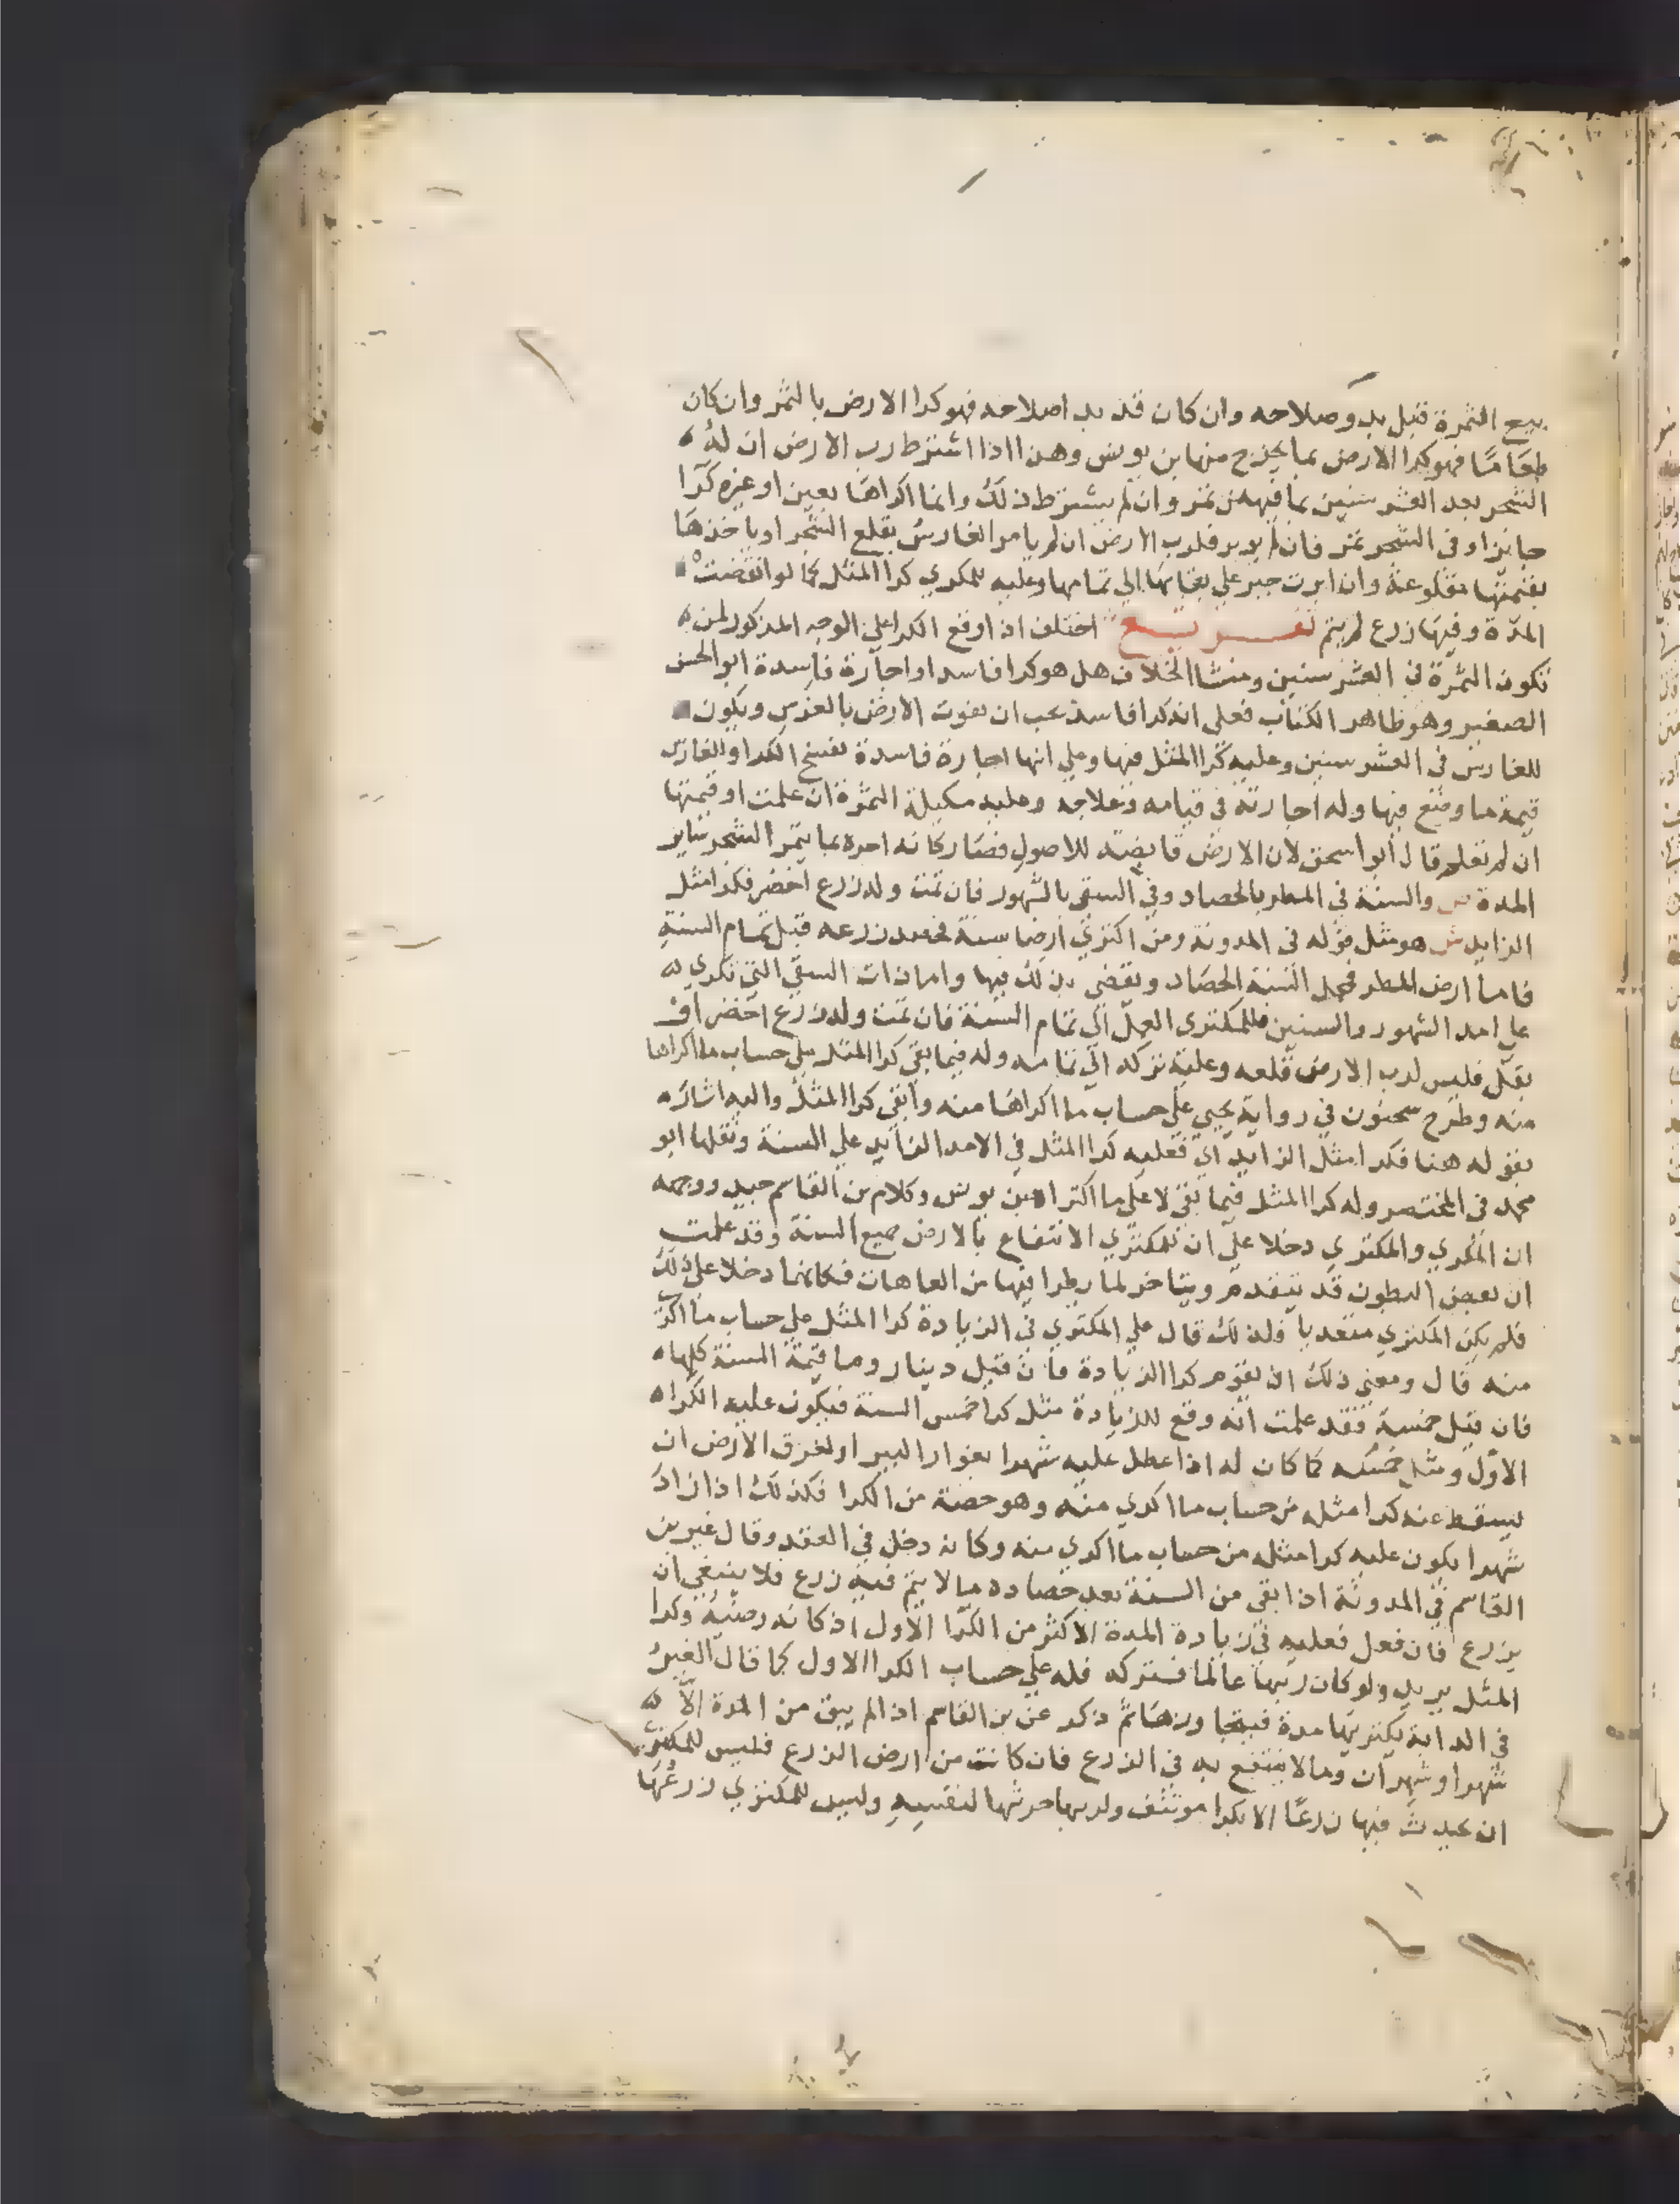 بيع الثمرة قبل بدو صلاحه وان كان قد بد اصلاحه فهو كرا الارض بالثمر وان كان
طعامًا فهو كرا الارض بما يخرج منها بن يونس وهذا اذا اشترط رب الارض ان له
الشجر بعد العشر سنين بما فيه من ثمر وان لم يشترط ذلك وانما اكراها بعين او غيره كرًا
جايزا وفي الشجر ثمر فان لم يوبر فلرب الارض ان يامر الغارس بقلع الشجر او ياخذها
بقيمتها مقلوعة وان ابرت جبر على بقايها الي تمامها وعليه للمكري كرا المثل كما لو انقضت
المدّة وفيها زرع لم يتم تفريع اختلف اذا وقع الكرا على الوجه المذكور لمن
تكون الثمرة في العشر سنين ومنشا الخلاف هل هو كرا فاسد او اجارة فاسدة ابو الحسن
الصغير وهو ظاهر الكتاب فعلى انه كرا فاسد يجب ان يفوت الارض بالغرس ويكون
للغارس في العشر سنين وعليه كرا المثل فيها وعلي انها اجارة فاسدة يفسخ الكرا وللغارس
قيمة ما وضع فيها وله اجارته في قيامه وعلاجه وعليه مكيلة الثمرة ان علمت او قيمتها
ان لم تعلم قال ابو اسحق لان الارض قابضة للاصول فصار كانه اجره بما يثمر الشجر ساير
المدة ص والسنة في المطر بالحصاد وفي السقي بالشهور فان تمت وله زرع اخضر فكرا مثل
الزايد ش هو مثل قوله في المدونة ومن اكترى ارضا سنة فحصد زرعه قبل تمام السنة
فاما ارض المطر فمحمل السنة الحصاد ويقضى بذلك فيها واما ذات السقي التي تكري
علي امد الشهور والسنين فللمكتري العمل الي تمام السنة فان تمت وله زرع اخضر او
بقل فليس لرب الارض قلعه وعليه تركه الي تمامه وله فيما بقي كرا المثل علي حساب ما اكراها
منه وطرح سحنون في رواية يحيى علي حساب ما اكراها منه وابقى كرا المثل واليه اشار
بقوله هنا فكرا مثل الزايد اي فعليه كرا المثل في الامد الزايد علي السنة ونقلها ابو
محمد في المختصر وله كرا المثل فيما بقي لا على ما اكتراه بن يونس وكلام بن القاسم جيد ووجهه
ان المكري والمكتري دخلا علي ان للمكتري الانتفاع بالارض جميع السنة وقد علمت
ان بعض البطون قد يتقدم ويتاخر لما يطرا فيها من العاهات فكانهما دخلا علي ذلك
فلم يكن المكتري متعديا فلذلك قال علي المكتري في الزيادة كرا المثل علي حساب ما اكترى
منه قال ومعنى ذلك ان يقوم كرا الزيادة فان قيل دينار وما قيمة السنة كلها
فان قيل خمسة فقد علمت انه وقع للزيادة مثل كرا خمس السنة فيكون عليه الكراه
الاول ومثل خمسه كما كان له اذا عطل عليه شهرا بغوار البير او لغرق الارض ان
يسقط عنه كرا مثله من حساب ما اكري منه وهو حصته من الكرا فكذلك اذا زاد
شهرا يكون عليه كرا مثله من حساب ما اكري منه وكانه دخل في العقد وقال غير بن
القاسم في المدونة اذا بقي من السنة بعد حصاده ما لا يتم فيه زرع فلا ينبغي ان
يزرع فان فعل فعليه في زيادة المدة الاكثر من الكرا الاول اذ كانه رضيه وكرا
المثل يريد ولو كان ربها عالما فتركه فله علي حساب الكرا الاول كما قال الغير
في الدابة يكتريها مدة فيتجاوزها ثم ذكر عن بن القاسم اذا لم يبق من المدة الا
شهرا او شهران وما لا ينتفع به في الزرع فان كانت من ارض الزرع فليس للمكتري
ان يحدث فيها زرعًا الا بكرا موتنف ولربها حرثها لنفسه وليس للمكتري زرعها